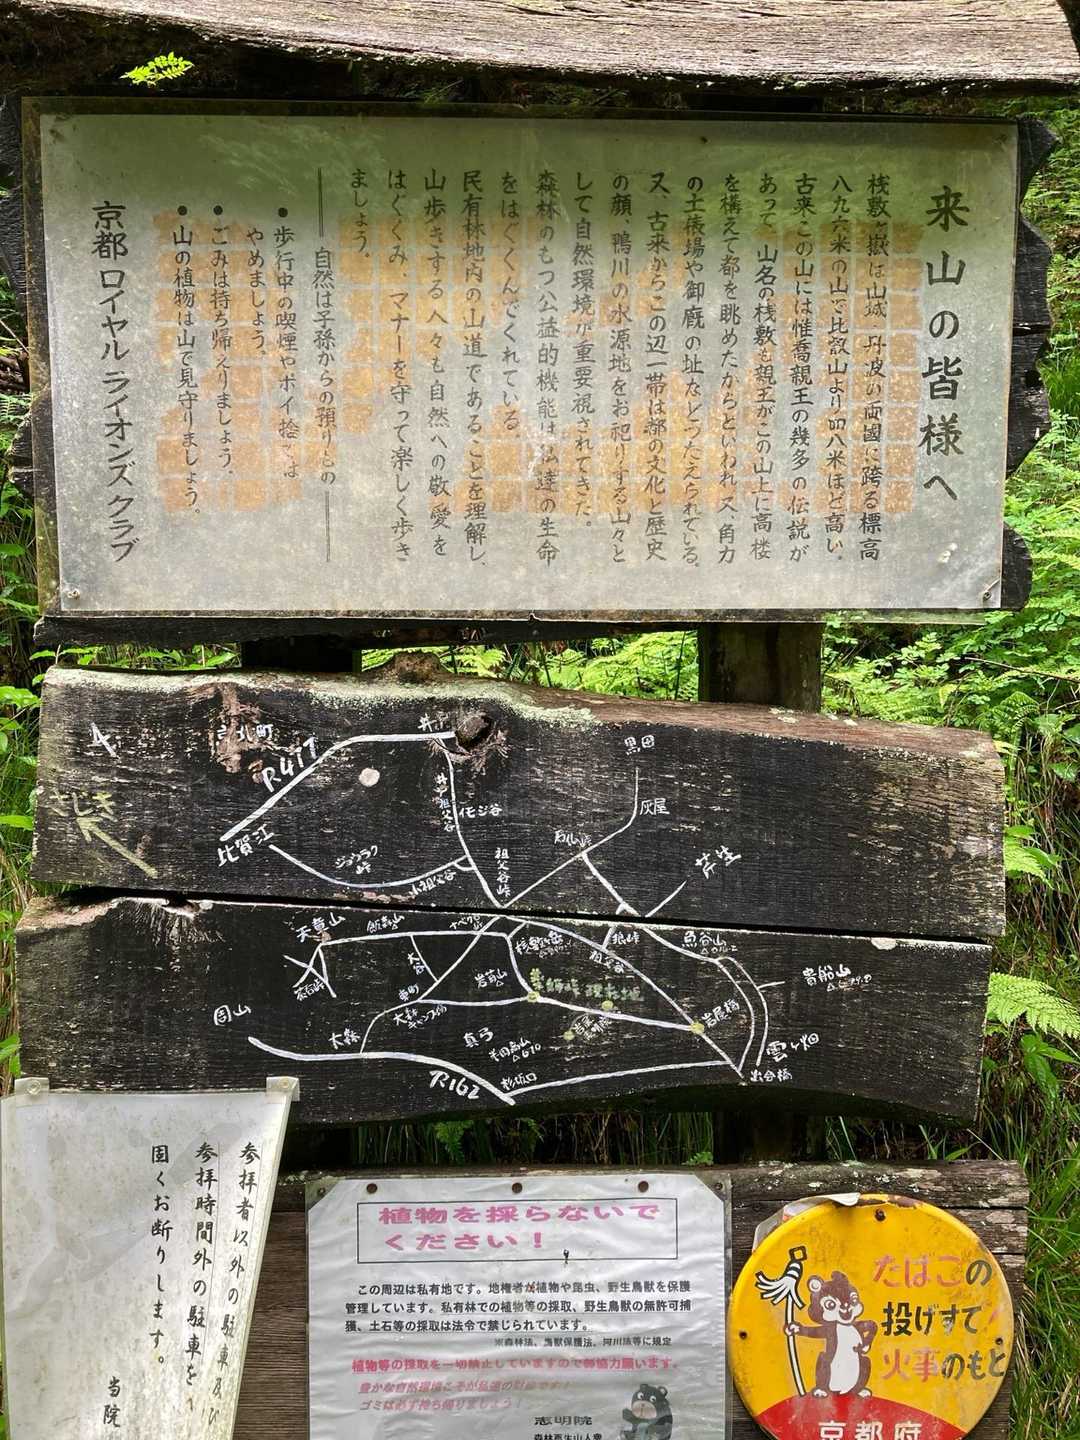 来山の皆様へ
桟敷ヶ嶽は山城・丹波の両國に跨る標高
八九六米の山で比叡山より四八米ほど高い。
古来この山には惟喬親王の幾多の伝説が
あって、山名の桟敷も親王がこの山上に高楼
を構えて都を眺めたからといわれ、又、角力
の土俵場や御厩の址などつたえられている。
又、古来からこの辺一帯は都の文化と歴史
の顔、鴨川の水源地をお祀りする山々と
して自然環境が重要視されてきた。
森林のもつ公益的機能は私達の生命
をはぐくんでくれている。
民有林地内の山道であることを理解し、
山歩きする人々も自然への敬愛を
はぐくみ、マナーを守って楽しく歩き
ましょう。
自然は子孫からの預りもの
●歩行中の喫煙やポイ捨ては
やめましょう。
●ごみは持ち帰えりましょう。
●山の植物は山で見守りましょう。
京都ロイヤルライオンズクラブ
さじき
R477
井戸
井戸祖父谷
イモジ谷
黒田
灰屋
石仏峠
比賀江
ジョウラク峠
小祖父谷
祖父谷峠
芹生
天童山
飯森山
茶呑峠
大谷
東町
大森キャンプ場
岩茸山
桟敷ヶ岳
狼峠
祖父谷
魚谷山
貴船山
薬師峠 現在地
岩屋橋
周山
大森
真弓
R162
杉坂口
雲ヶ畑
出合橋
参拝者以外の駐車及び
参拝時間外の駐車を
固くお断りします。
当院
植物を採らないで
ください！
この周辺は私有地です。地権者が植物や昆虫、野生鳥獣を保護
管理しています。私有林での植物等の採取、野生鳥獣の無許可捕
獲、土石等の採取は法令で禁じられています。
※森林法、鳥獣保護法、河川法等に規定
植物等の採取を一切禁止していますので御協力願います。
豊かな自然環境こそが私達の財産です！
ゴミは必ず持ち帰りましょう！
志明院
たばこの
投げすて
火事のもと
京都府